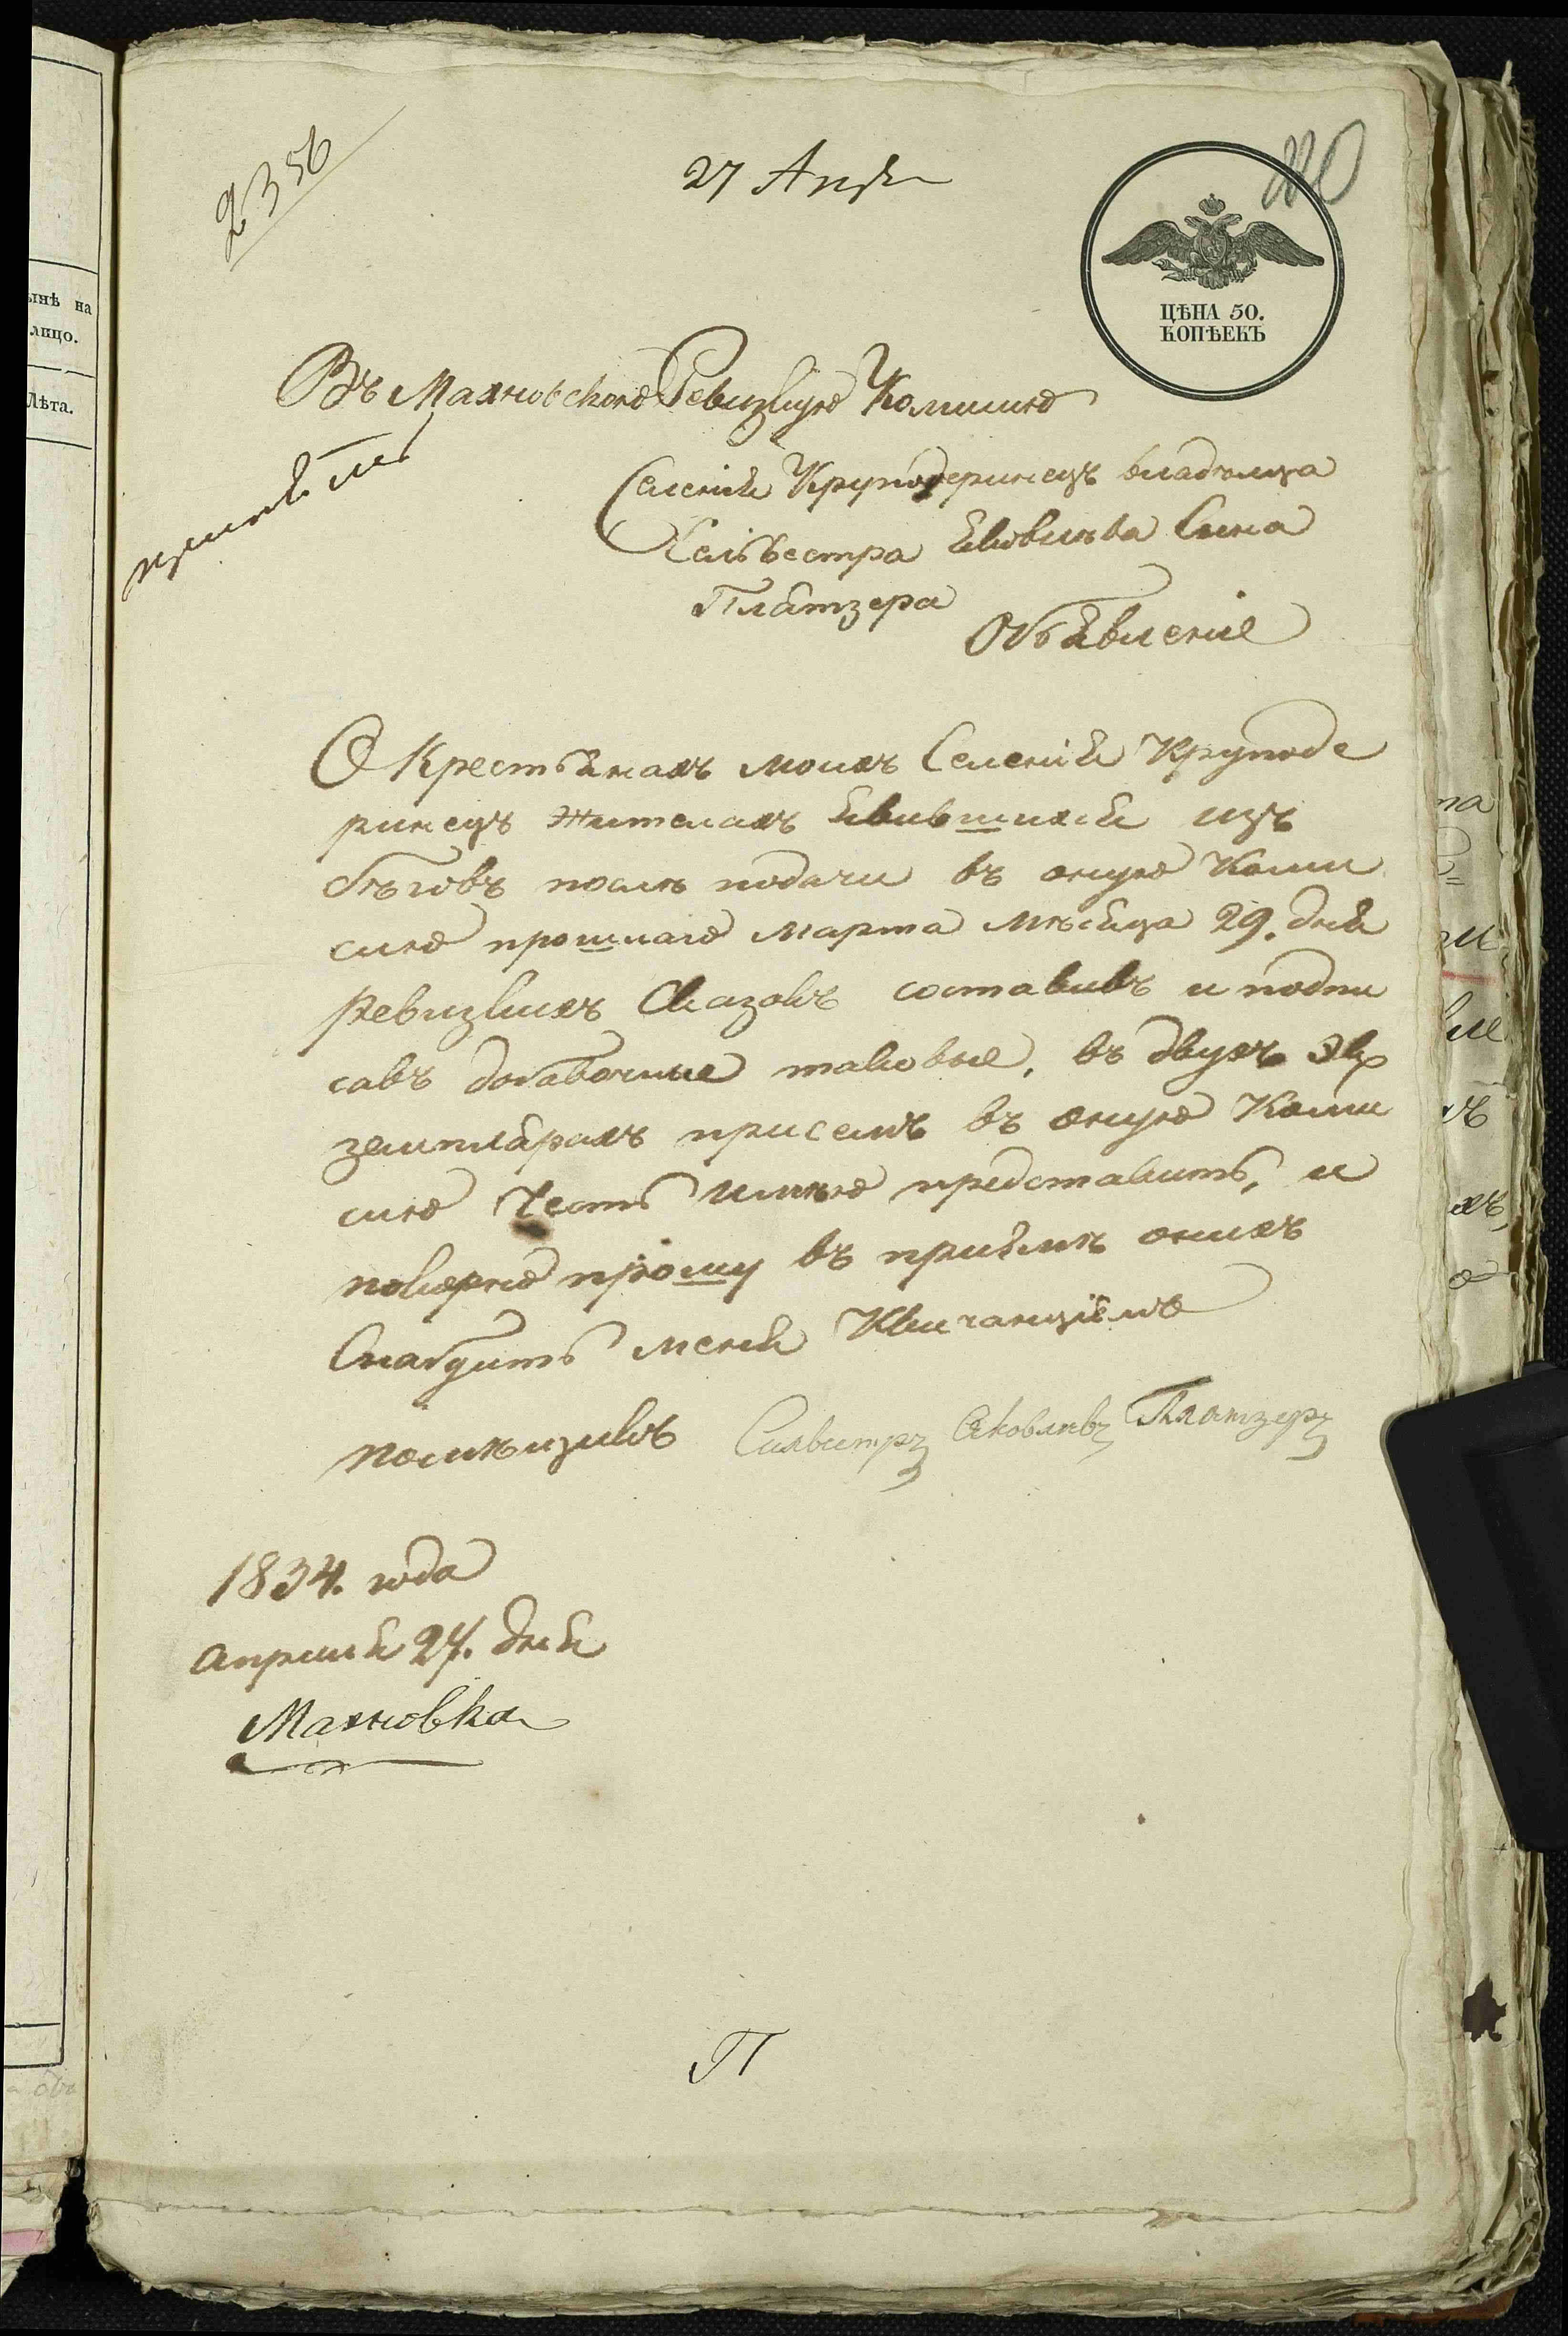 2356
27 Апр
ЦѢНА 50.
КОПѢЕКЪ
Въ Махновскою Ревизкую Комисию
Селенія Круподеринецъ владѣльца
Сельвестра Яковлѣва Сина
Плятзера
Объявленіе
О Крестьянахъ моихъ Селенія Круподе
ринецъ жителахъ явившихся изъ
бѣговъ послѣ подачи въ оную Коми
сию прошлаго марта мѣсяца 29. дня
Ревизкихъ Сказокъ составивъ и подпи
савъ добавочные таковые, въ двухъ Экз
земплярахъ присемъ въ оную Коми
сию Честь имѣю представить, и
покорно прошу въ пріемѣ онихъ
Снабдить меня Квитанціею
помѣщикъ Силвестръ Яковлевъ Плятзеръ
1834. года
апрыля 27. дня
Махновка
П
ынѣ на
лицо.
Лѣта.